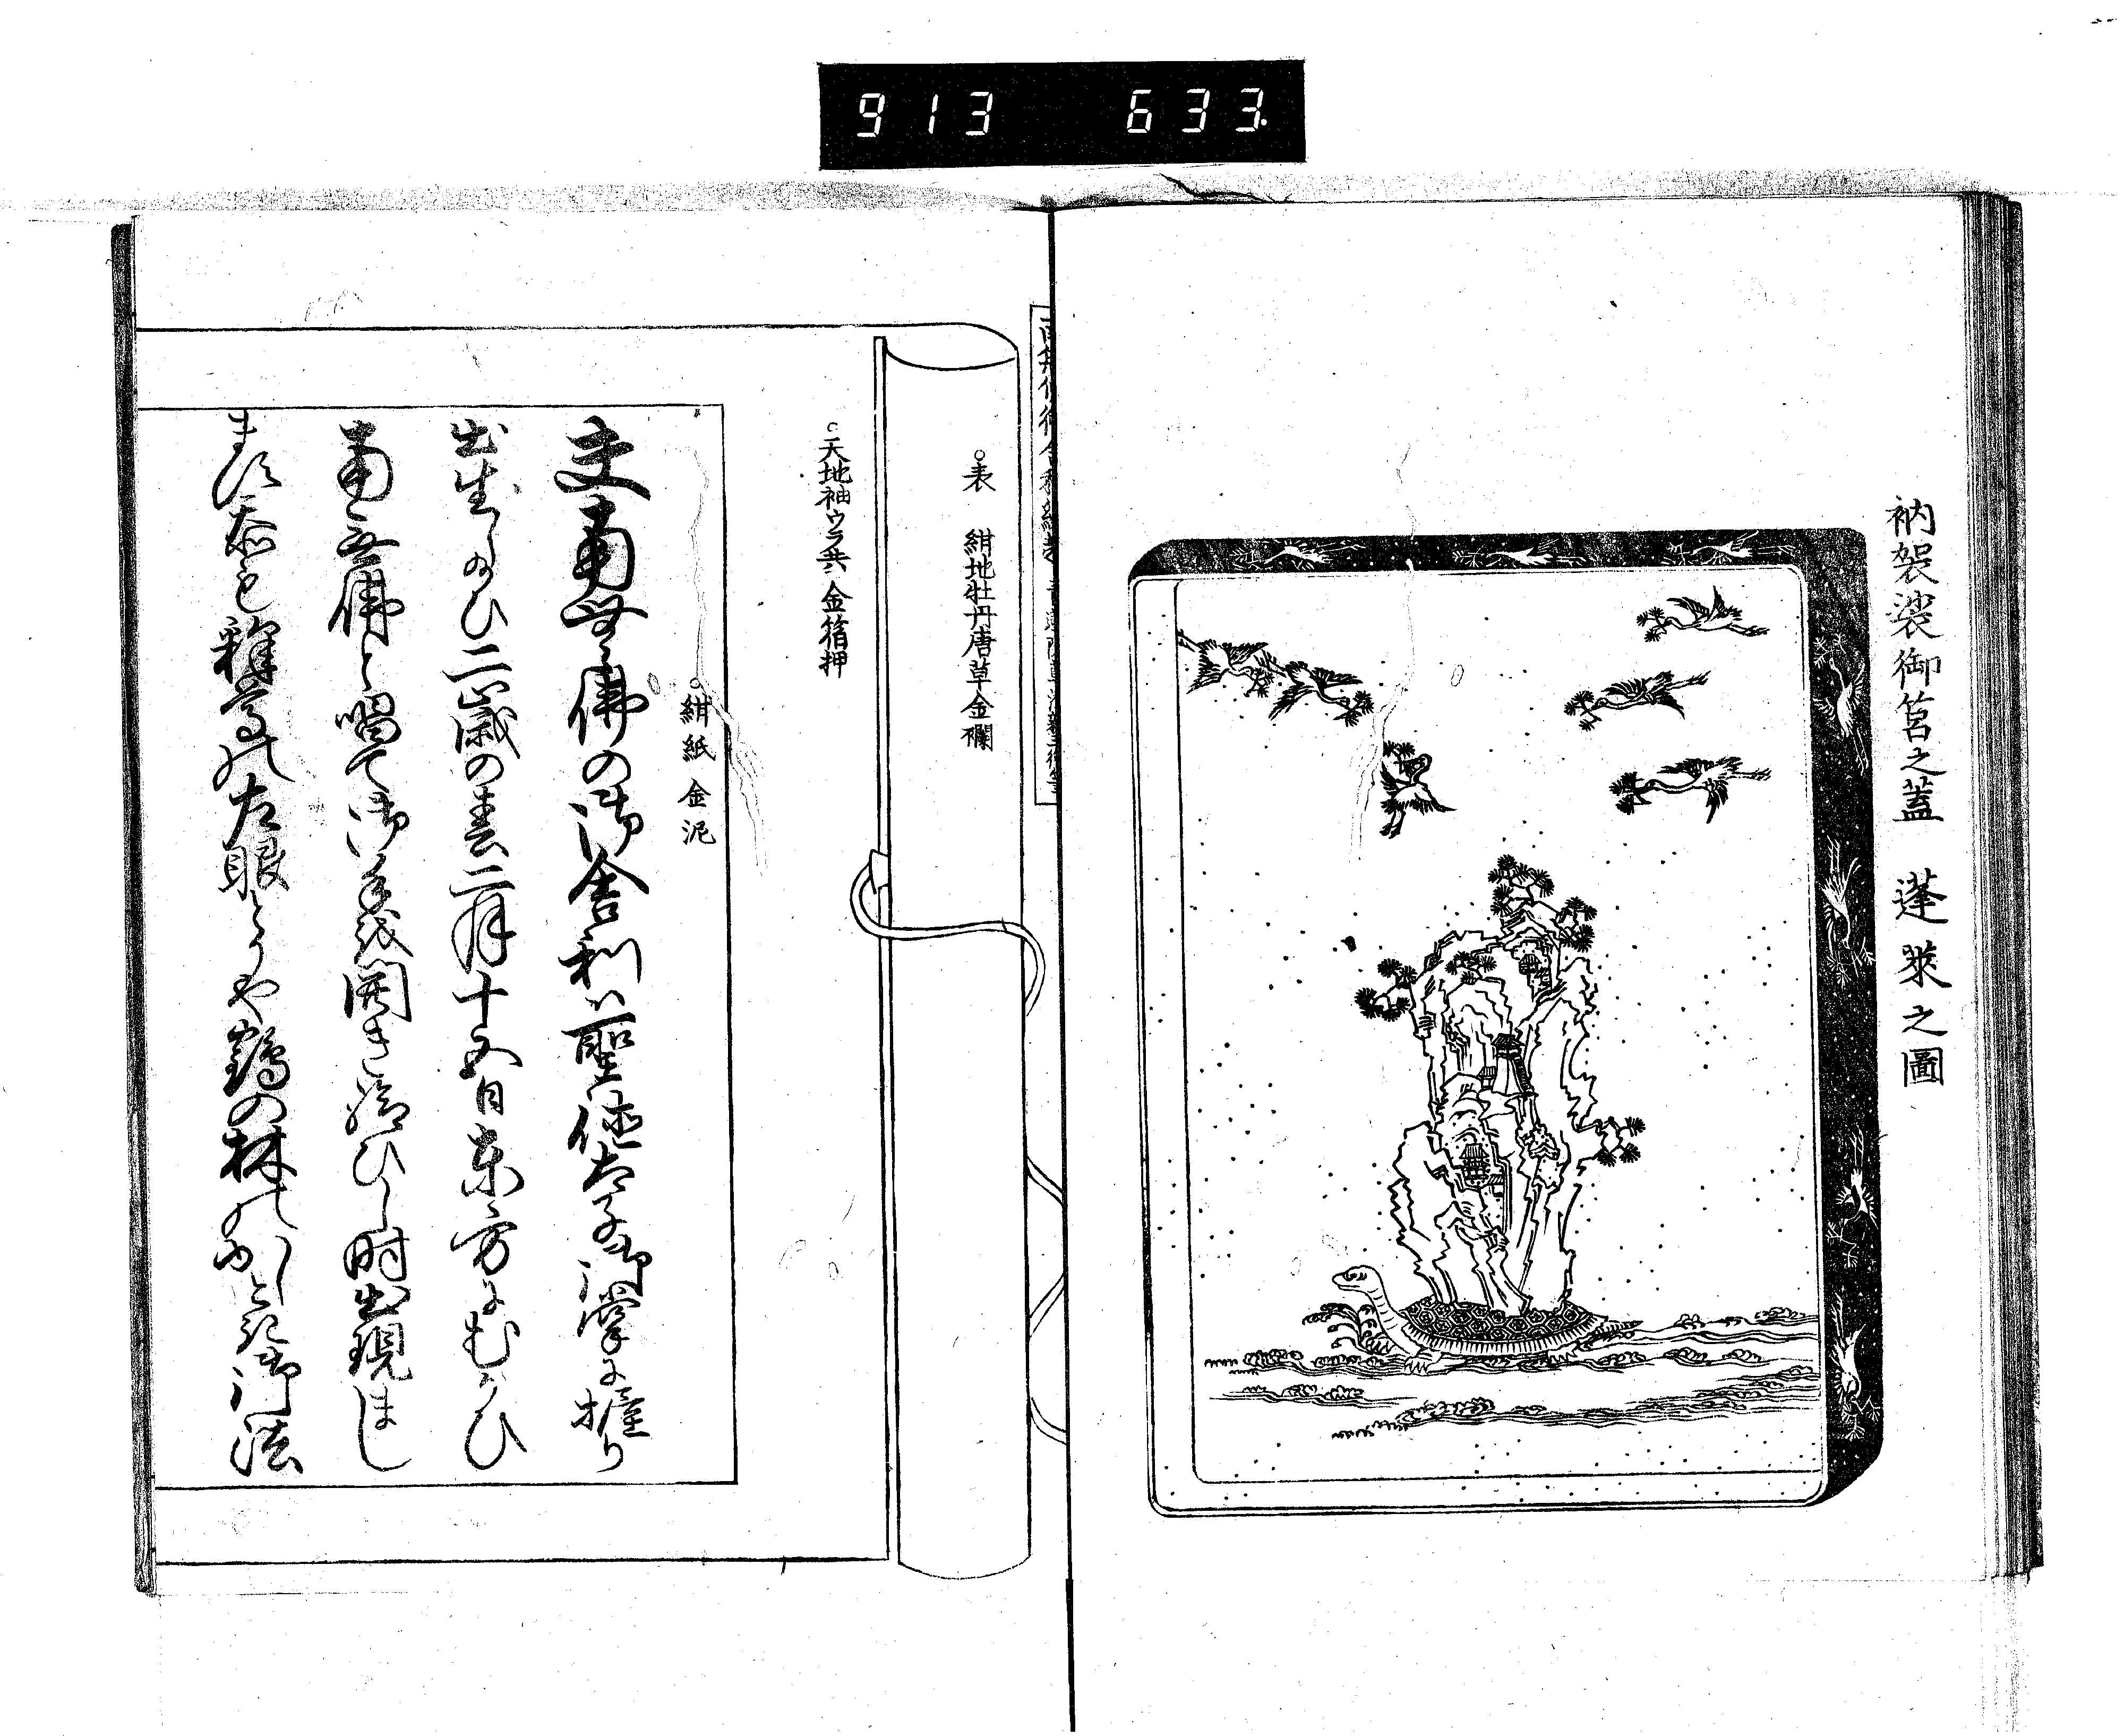 913 633.
衲袈裟御筥之蓋 蓬萊之圖
表 紺地牡丹唐草金襴
天地袖ウラ共 金箔押
紺紙金泥
夫南無佛の御舎利ハ聖徳太子御掌に握り
出生し給ひ二歳の春二月十五日東方にむかひ
南無佛と唱て御手を開き給ひし時出現まし
ます忝も釋尊の左眼とかや鶴の林のかたき御法